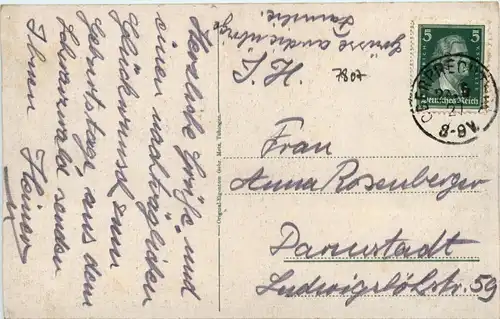 Herzliche Grüße und
einen nachträglichen
Glückwunsch zum
Geburtstage, aus dem
Schwarzwald senden
Ihnen Heiner
Grüsse an die übrige
Familie.
T. H.
7807
Frau
Anna Rosenberger
Darmstadt
Ludwigshöhstr. 59
5 5
Deutsches Reich
8-9V.
Original-Eigentum Gebr. Metz, Tübingen.